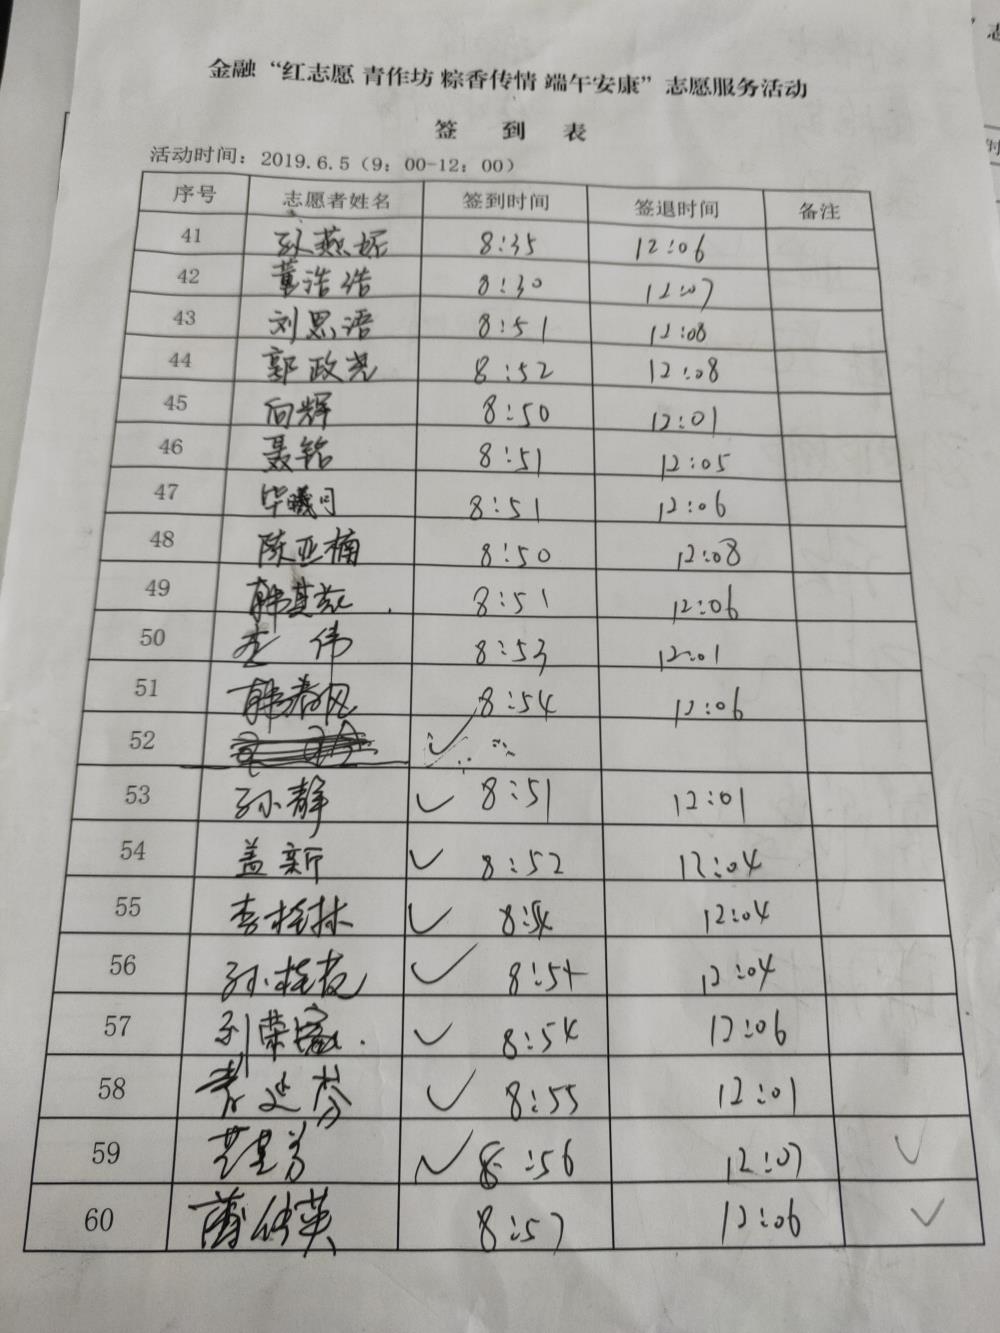 金融“红志愿 青作坊 粽香传情 端午安康”志愿服务活动
签 到 表
活动时间：2019.6.5（9：00-12：00）
序号 志愿者姓名 签到时间 签退时间 备注
41 孙燕妮 8:35 12:06
42 董浩浩 8:30 12:07
43 刘思语 8:51 12:08
44 郭政尧 8:52 12:08
45 向辉 8:50 12:01
46 聂铭 8:51 12:05
47 毕曦月 8:51 12:06
48 陈亚楠 8:50 12:08
49 韩其 8:51 12:06
50 李伟 8:53 12:01
51 韩春风 8:54 12:06
52 ✓
53 孙静 ✓ 8:51 12:01
54 盖新 ✓ 8:52 12:04
55 李桂林 ✓ 8:54 12:04
56 孙桂 ✓ 8:54 12:04
57 荣 ✓ 8:54 12:06
58 ✓ 8:55 12:01
59 ✓ 8:56 12:07 ✓
60 英 8:57 12:06 ✓